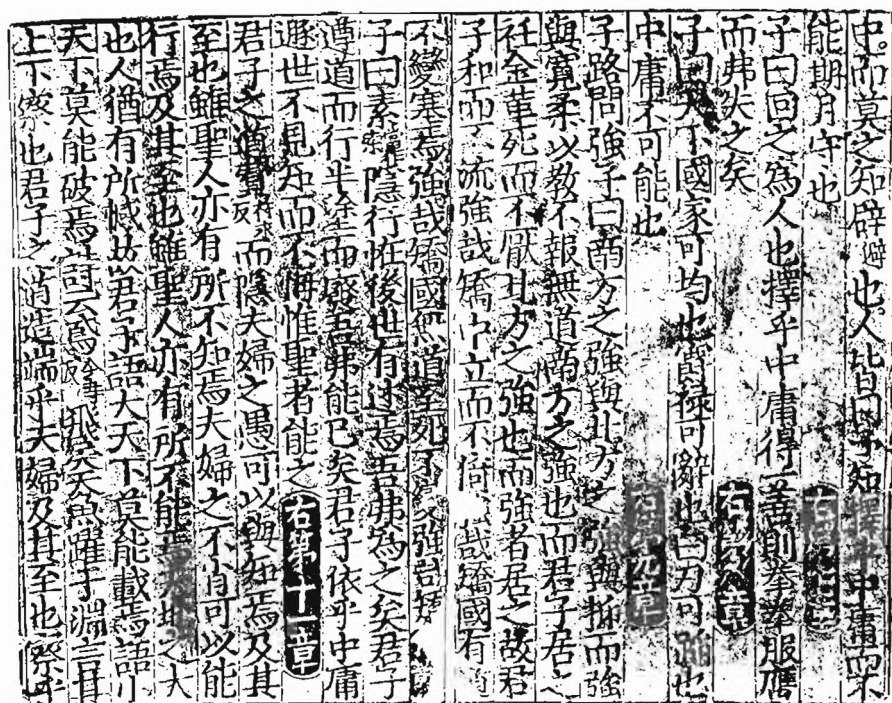 中而莫之知辟避也人皆曰予知擇乎中庸而不
能期月守也右第七章
子曰回之為人也擇乎中庸得一善則拳拳服膺
而弗失之矣右第八章
子曰天下國家可均也爵祿可辭也白刃可蹈也
中庸不可能也右第九章
子路問強子曰南方之強與北方之強與抑而強
與寬柔以教不報無道南方之強也君子居之
衽金革死而不厭北方之強也而強者居之故君
子和而不流強哉矯中立而不倚強哉矯國有道
不變塞焉強哉矯國無道至死不變強哉矯
子曰素隱行恠後世有述焉吾弗為之矣君子
遵道而行半塗而廢吾弗能已矣君子依乎中庸
遯世不見知而不悔惟聖者能之右第十一章
君子之道費而隱夫婦之愚可以與知焉及其
至也雖聖人亦有所不知焉夫婦之不肖可以能
行焉及其至也雖聖人亦有所不能焉天地之大
也人猶有所憾故君子語大天下莫能載焉語小
天下莫能破焉詩云鳶飛戾天魚躍于淵言其
上下察也君子之道造端乎夫婦及其至也察乎